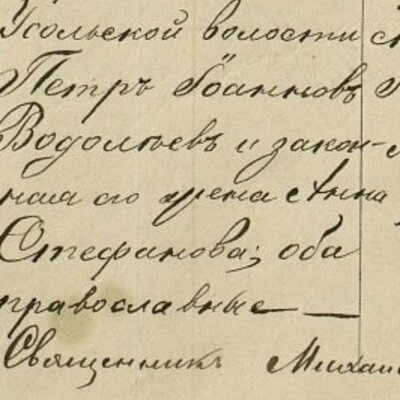 Усольской волости
Петръ Іоанновъ
Водолѣевъ и закон-
ная его жена Анна
Стефанова; оба
православные —
Священникъ Михаи